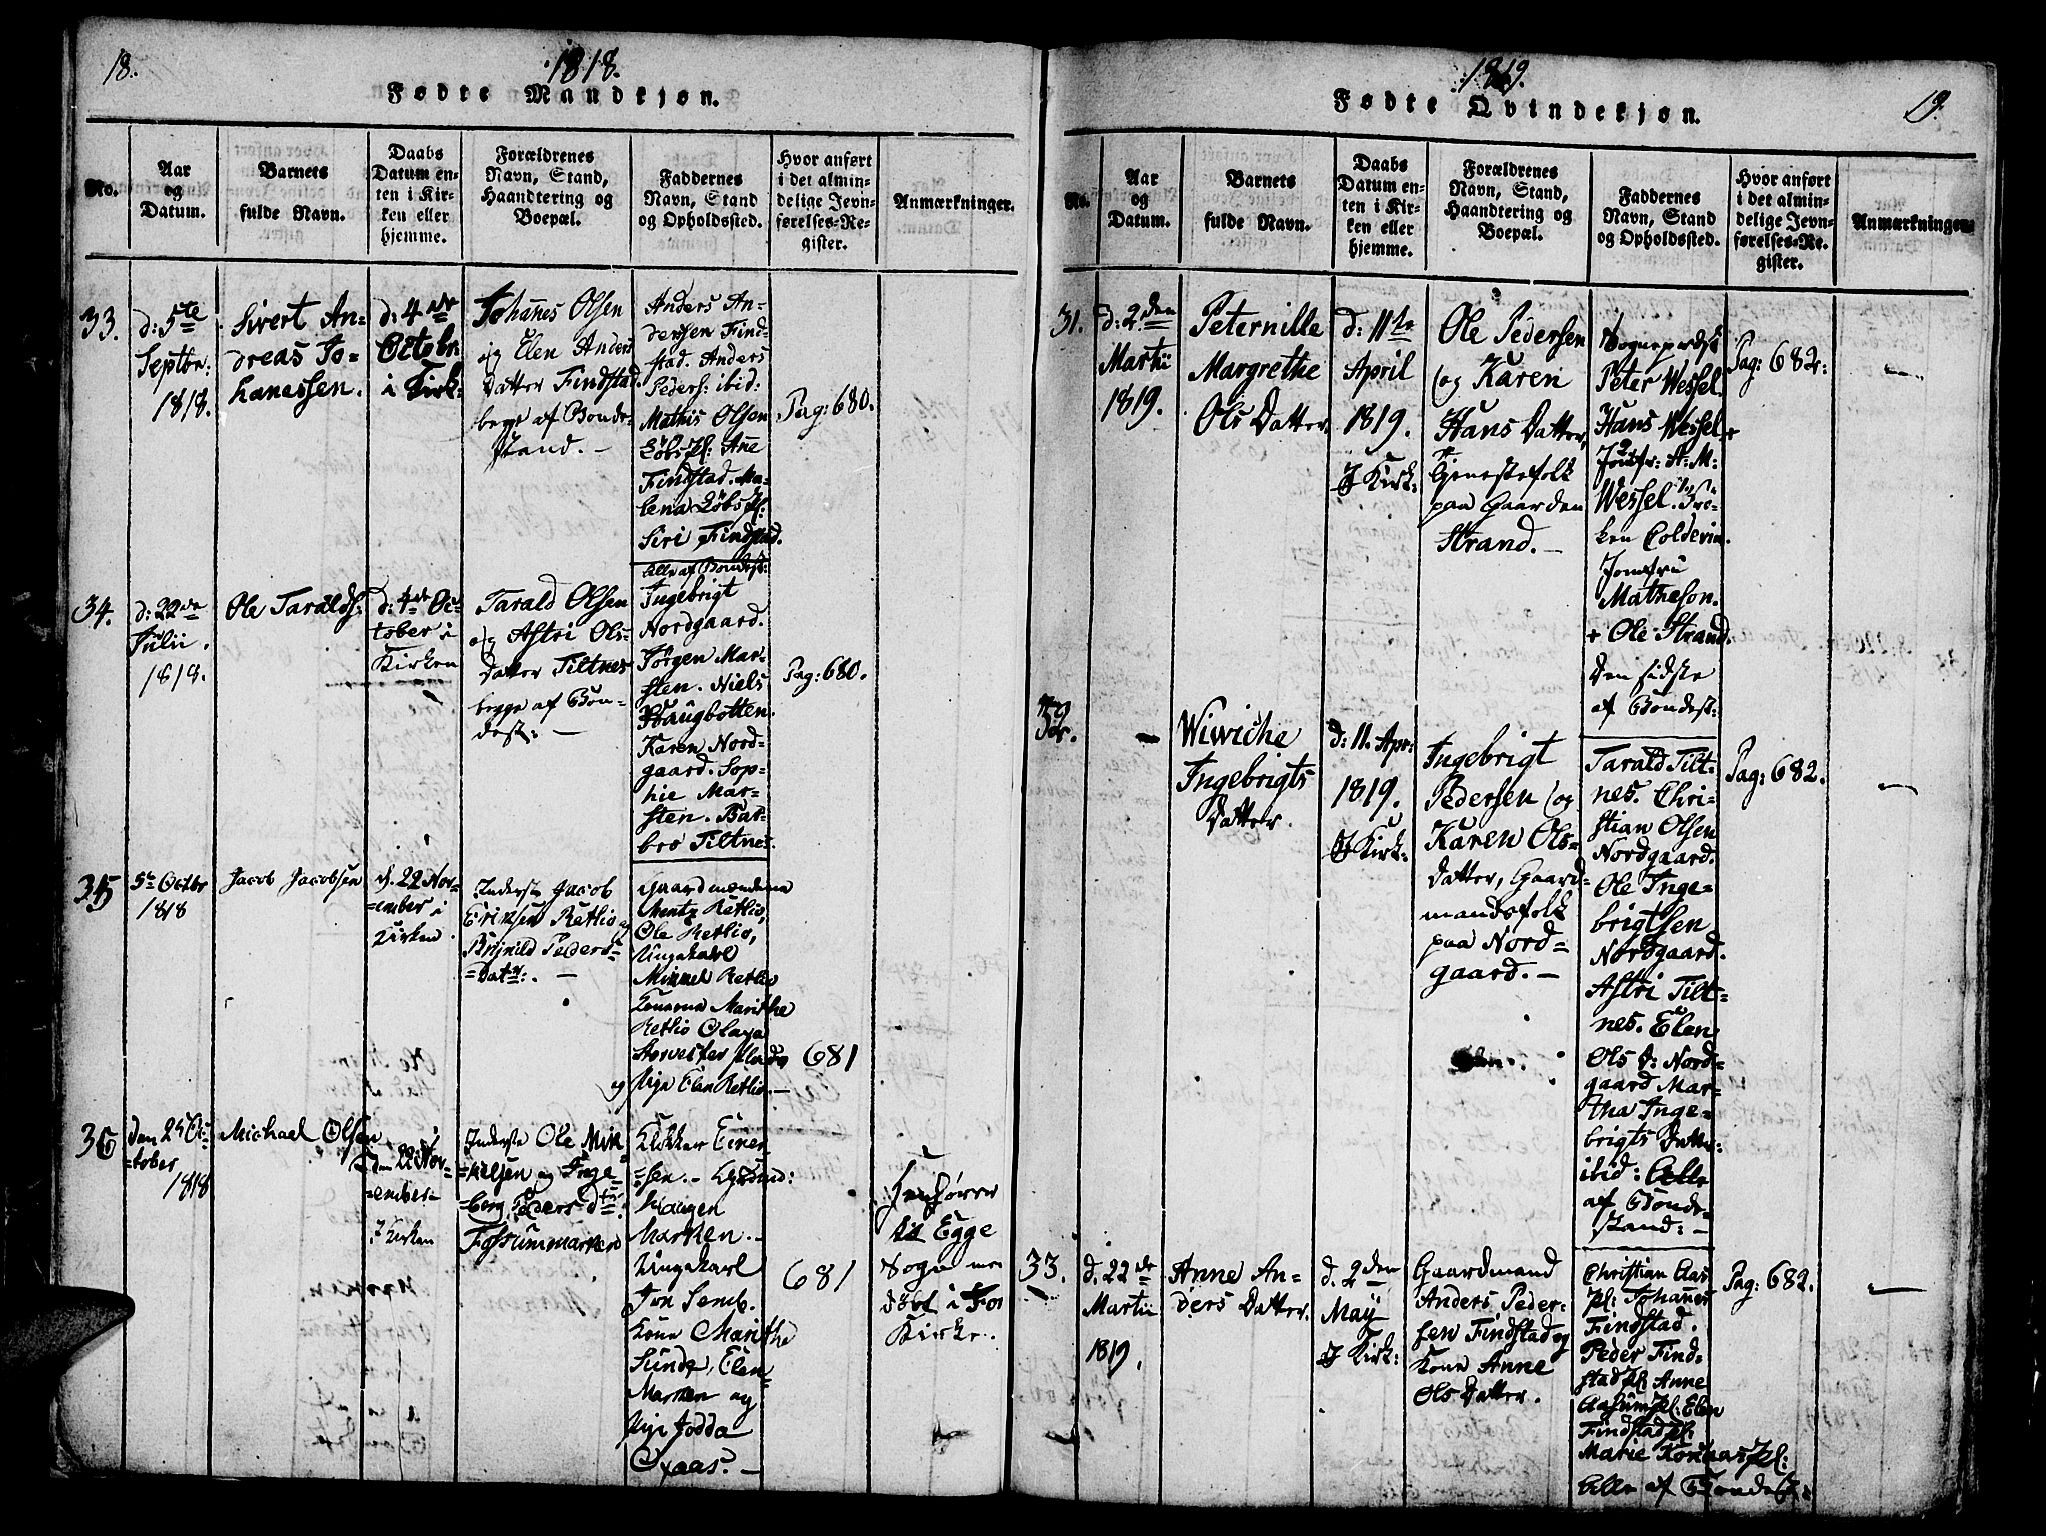 18.
1818.
Fødte Mandkjøn.
No.
Aar
og
Datum.
Barnets
fulde Navn.
Daabs
Datum en-
ten i Kir-
ken eller
hjemme.
Forældrenes
Navn, Stand,
Haandtering og
Boepæl.
Faddernes
Navn, Stand
og Opholdssted.
Hvor anført
i det almin-
delige Jevn-
førelses-Re-
gister.
Anmærkninger.
33.
d: 5te
Septbr:
1818.
Sivert An-
dreas Jo-
hanessen.
d: 4de
Octobr:
i Kirk:
Johannes Olsen
og Elen Anders
Datter Findstad.
begge af Bonde-
stand. -
Anders An-
dersen Find-
stad. Anders
Peders: ibid:
Mathis Olsen
Løbspl: Ane
Findstad. Ma-
lena Løbspl:
Siri Findstad.
Alle af Bondest:
Pag: 680.
34.
d: 22de
Julii.
1818.
Ole Taralds:
d: 4de Oc-
tober i
Kirken
Tarald Olsen
og Astri Ols-
Datter Tiltnes
begge af Bon-
dest: -
Ingebrigt
Nordgaard.
Jørgen Mar-
sten. Niels
Haugbotten.
Karen Nord-
gaard. Sop-
hie Mar-
sten. Bar-
bro Tiltnes.
Pag: 680.
35
5te Octbr
1818
Jacob Jacobsen
d. 22 Nov-
=ember i
Kirken
Inderst Jacob
Erichsen Retlio og
Brynild Peders=
=Datr: -
Gaardmændene
Mentz Retlio,
Ole Retlio,
Ungekarl
Mikkel Retlio
Konerne Marithe
Retlio Olava
og Pige Elen Retlio. -
681
36
den 24 Oc-
=tober
1818
Michael Olsen
den 22 Nov-
=ember
I Kirken
Inderste Ole Mik-
=kelsen og Inge-
=berg Peders dtr:
Fossummarken
Klokker Einer-
=sen. -
Haagen
Marken. -
Ungekarl
Jon Semb.
Kone Marithe
Sunde, Elen
Marken og
Pige Jodda
Oxaas. -
681
Henhører
til Egge
Sogn men
døbt i For
Kirke.
1819.
19.
Fødte Qvindekjøn.
No.
Aar
og
Datum.
Barnets
fulde Navn.
Daabs
Datum en-
ten i Kir-
ken eller
hjemme.
Forældrenes
Navn, Stand,
Haandtering og
Boepæl.
Faddernes
Navn, Stand
og Opholdssted.
Hvor anført
i det almin-
delige Jevn-
førelses-Re-
gister.
Anmærkninger
31.
d: 2den
Martii
1819.
Peternille
Margrethe
Ols Datter.
d: 11te
April
1819.
I Kirk:
Ole Pedersen
og Karen
Hans Datter,
Tjenestefolk
paa Gaarden
Strand. -
Sognepræst
Peter Wessel.
Hans Wessel +
Jomfr: A. M:
Wessel. Frø-
ken Coldevin.
Jomfru
Matheson.
+ Ole Strand.
Den sidste
af Bondest:
Pag: 682.
32.
-
Wiwiche
Ingebrigts
Datter.
d: 11. Apr:
1819.
I Kirk:
Ingebrigt
Pedersen og
Karen Ols-
Datter, Gaard-
mandsfolk
paa Nord=
gaard. -
Tarald Tilt-
nes. Chri-
stian Olsen
Nordgaard.
Ole Inge-
brigtsen
Nordgaard.
Astri Tilt-
nes. Elen
Ols D: Nord-
gaard Mar-
tha Inge-
brigts Datter
ibid: Alle
af Bonde-
stand: -
Pag: 682.
-
33.
d. 22de
Martii
1819.
Anne An-
ders Datter.
d. 2den
Maij
I Kirk:
Gaardmand
Anders Peder-
sen Findstad og
Kone Anne
Ols Datter.
Christian Aas
pl: Johannes
Findstad.
Peder Find-
stad pl: Anne
Aasumspl: Elen
Findstad pl:
Marie Konaaspl:
Alle af Bondest:
Pag: 682.
-